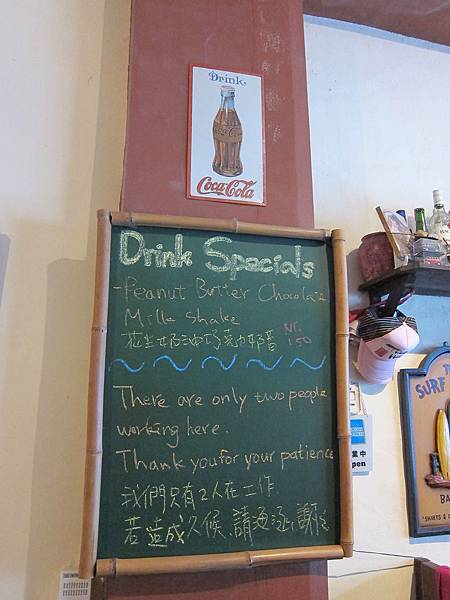 Drink
Coca-Cola
Drink Specials
-Peanut Butter Chocolate
Milk Shake
花生奶油巧克力奶昔
NT.
150
There are only two people
working here.
Thank you for your patience
我們只有2人在工作.
若造成久候,請海涵,謝謝
SURF
業中
open